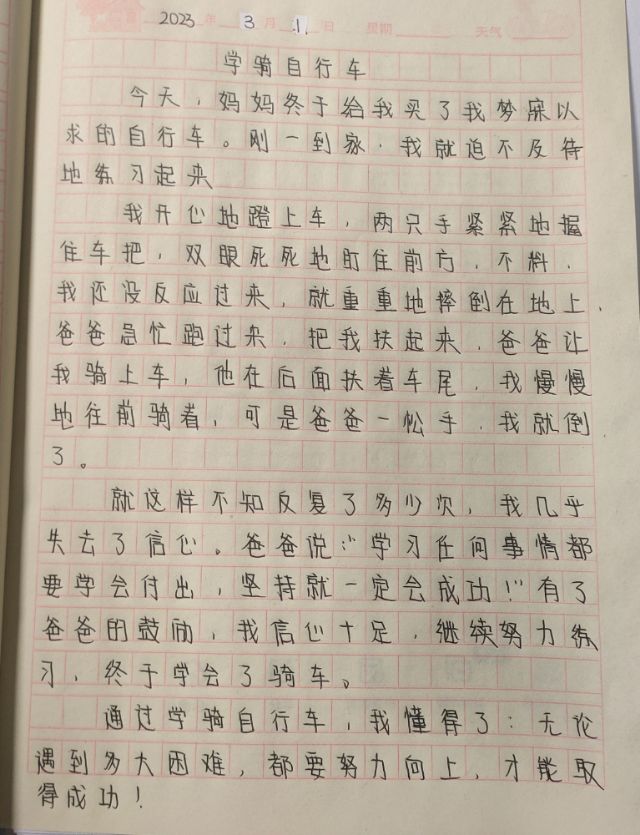 2023年3月1日 星期 天气
学骑自行车
今天，妈妈终于给我买了我梦寐以
求的自行车。刚一到家，我就迫不及待
地练习起来
我开心地蹬上车，两只手紧紧地握
住车把，双眼死死地盯住前方，不料，
我还没反应过来，就重重地摔倒在地上，
爸爸急忙跑过来，把我扶起来，爸爸让
我骑上车，他在后面扶着车尾，我慢慢
地往前骑着，可是爸爸一松手，我就倒
了。
就这样不知反复了多少次，我几乎
失去了信心。爸爸说：“学习任何事情都
要学会付出，坚持就一定会成功！”有了
爸爸的鼓励，我信心十足，继续努力练
习，终于学会了骑车。
通过学骑自行车，我懂得了：无论
遇到多大困难，都要努力向上，才能取
得成功！